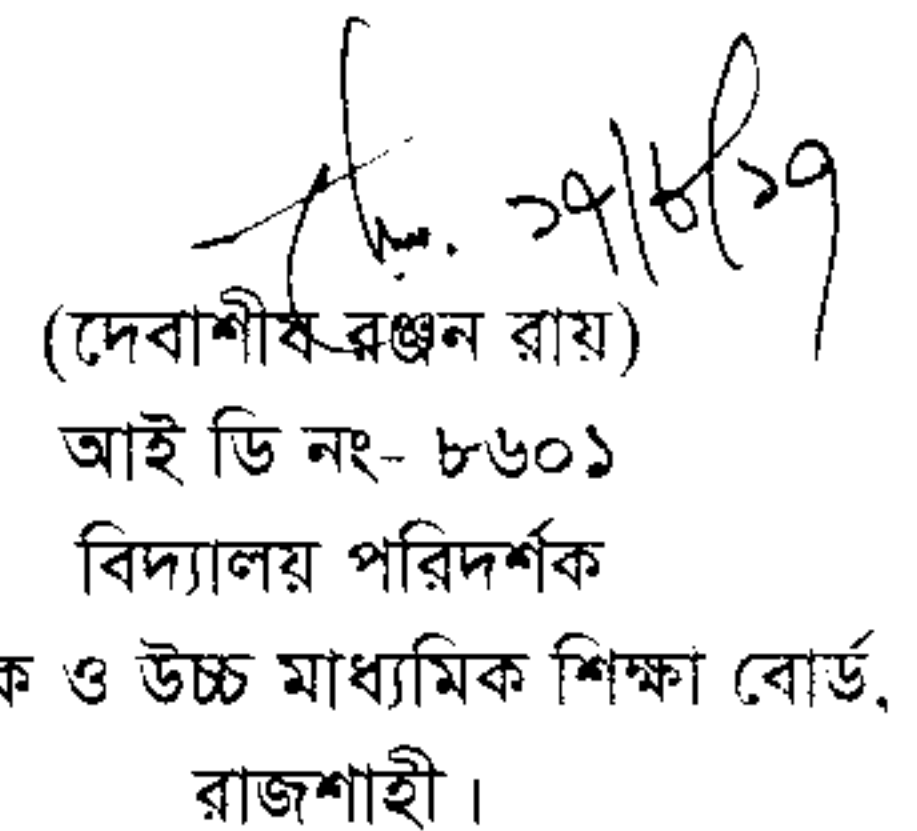 ১৭/৮/১৭
(দেবাশীষ রঞ্জন রায়)
আই ডি নং- ৮৬০১
বিদ্যালয় পরিদর্শক
ক ও উচ্চ মাধ্যমিক শিক্ষা বোর্ড,
রাজশাহী।